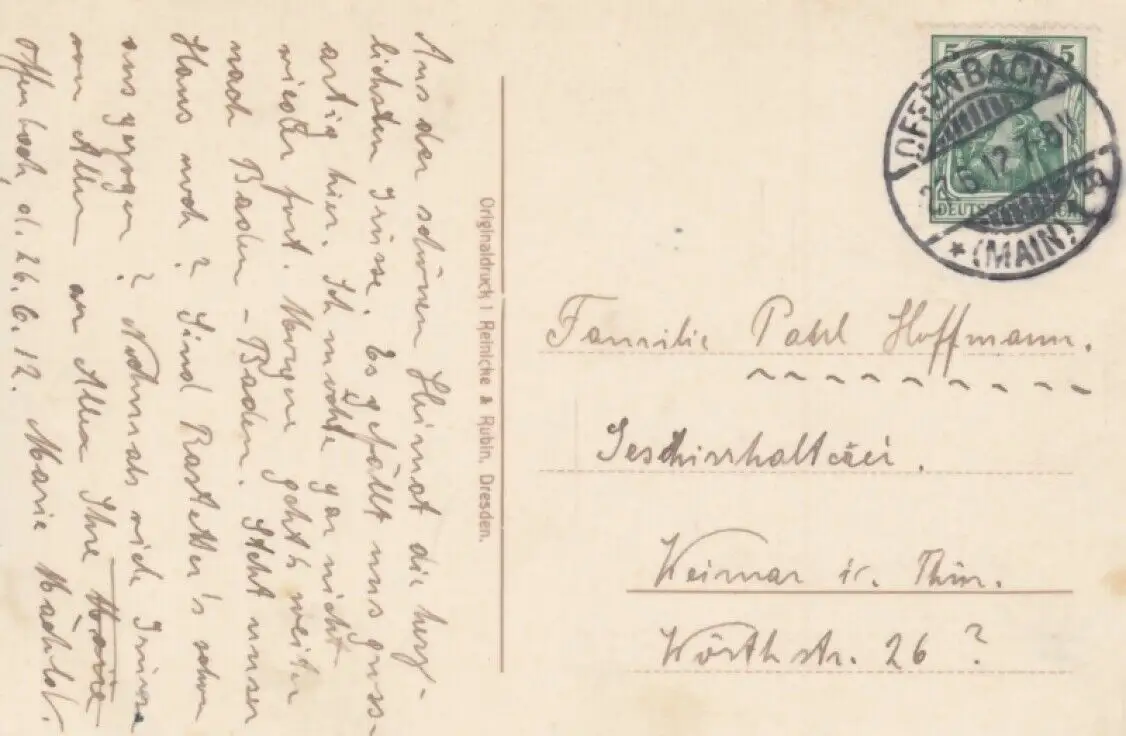 Aus der schönen Heimat die herz-
lichsten Grüsse. Es gefällt uns gross-
artig hier. Ich möchte gar nicht
wieder fort. Morgen geht's weiter
nach Baden-Baden. Steht unser
Haus noch? Sind Rastetter's schon
ausgezogen? Nochmals viele Grüsse
von Allen an Allen Ihre
Offenbach, d. 26.6.12. Marie
Originaldruck v. Reinicke & Rubin, Dresden.
5 5
DEUTSCHES REICH
OFFENBACH
6.12.7-8V
* (MAIN) 1
Familie Paul Hoffmann.
Geschirrhalterei.
Weimar i. Thür.
Wörthstr. 26?